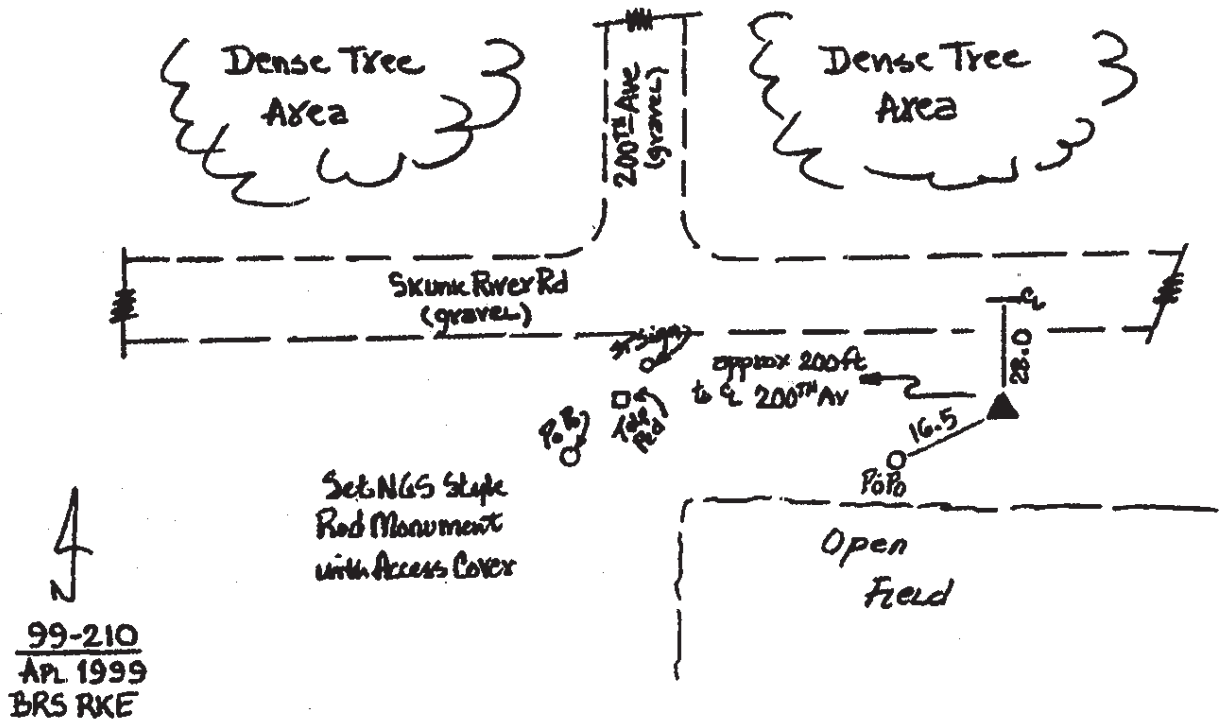 Dense Tree
Area
200TH Ave
(gravel)
Dense Tree
Area
Skunk River Rd
(gravel)
St Sign
℄
28.0
approx 200ft
to ℄ 200TH Av
PoPo
Tel
Ped
16.5
PoPo
Set NGS Style
Rod Monument
with Access Cover
Open
Field
N
99-210
APL 1999
BRS RKE